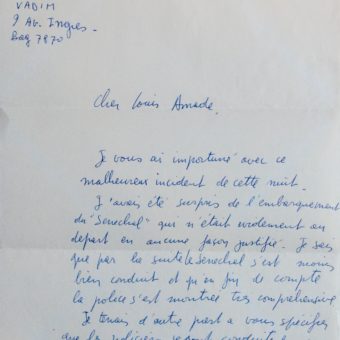 VADIM
9 Av. Ingres.
Bag 7870
Cher Louis Amade,
Je vous ai importuné avec ce
malheureux incident de cette nuit.
J'avais été surpris de l'embarquement
du "Senechal" qui n'était evidement au
départ en aucune façon justifié. Je sais
que par la suite le Senechal s'est moins
bien conduit et qu'en fin de compte
la police s'est montrée tres comprehensive
Je tenais d'autre part a vous spécifier
que les policiers se sont conduits